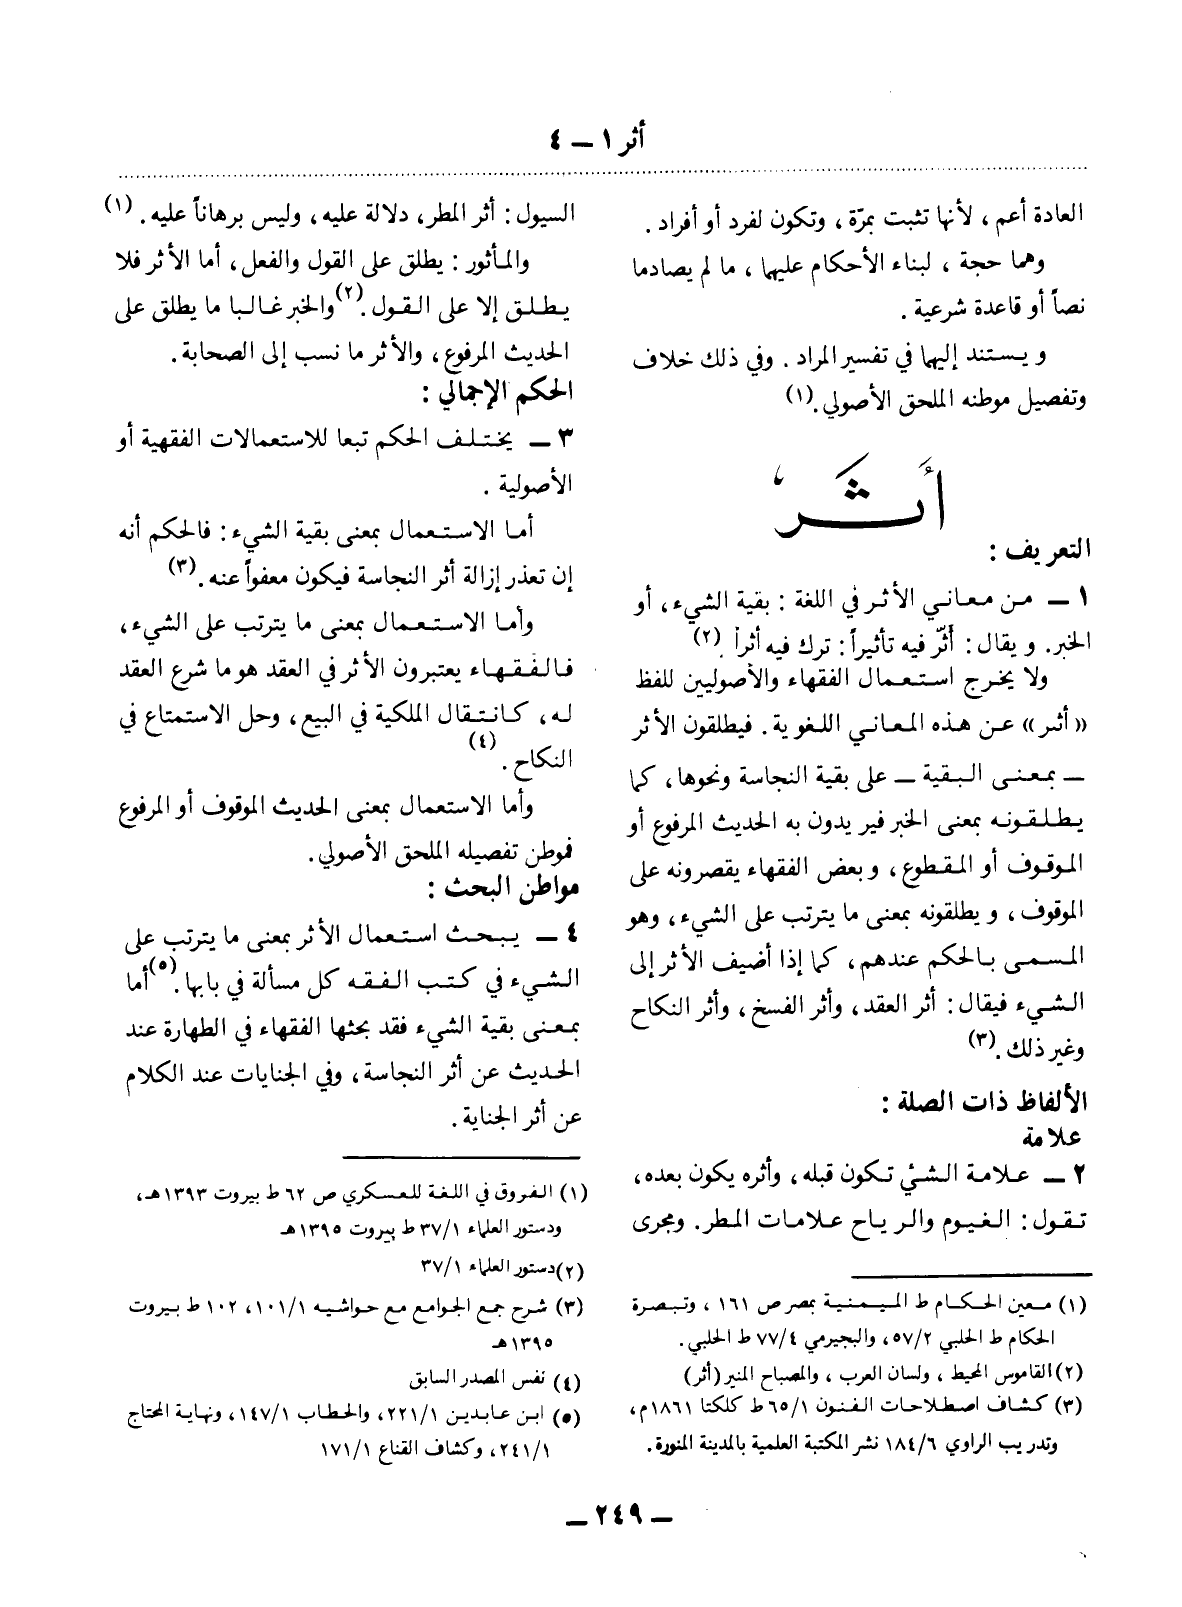 أثر ١ — ٤
العادة أعم ، لأنها تثبت بمرّة ، وتكون لفرد أو أفراد .
وهما حجة ، لبناء الأحكام عليهما ، ما لم يصادما
نصاً أو قاعدة شرعية .
ويستند إليهما في تفسير المراد . وفي ذلك خلاف
وتفصيل موطنه الملحق الأصولي .(١)
أَثَر
التعريف :
١ — من معاني الأثر في اللغة : بقية الشيء ، أو
الخبر . ويقال : أَثّر فيه تأثيراً : ترك فيه أثراً .(٢)
ولا يخرج استعمال الفقهاء والأصوليين للفظ
«أثر» عن هذه المعاني اللغوية . فيطلقون الأثر
— بمعنى البقية — على بقية النجاسة ونحوها ، كما
يطلقونه بمعنى الخبر فيريدون به الحديث المرفوع أو
الموقوف أو المقطوع ، وبعض الفقهاء يقصرونه على
الموقوف ، ويطلقونه بمعنى ما يترتب على الشيء ، وهو
المسمى بالحكم عندهم ، كما إذا أضيف الأثر إلى
الشيء فيقال : أثر العقد ، وأثر الفسخ ، وأثر النكاح
وغير ذلك .(٣)
الألفاظ ذات الصلة :
علامة
٢ — علامة الشئ تكون قبله ، وأثره يكون بعده ،
تقول : الغيوم والرياح علامات المطر . ومجرى
(١) معين الحكام ط الميمنية بمصر ص ١٦١ ، وتبصرة
الحكام ط الحلبي ٥٧/٢ ، والبجيرمي ٧٧/٤ ط الحلبي .
(٢) القاموس المحيط ، ولسان العرب ، والمصباح المنير (أثر)
(٣) كشاف اصطلاحات الفنون ٦٥/١ ط كلكتا ١٨٦١م ،
وتدريب الراوي ١٨٤/٦ نشر المكتبة العلمية بالمدينة المنورة .
السيول : أثر المطر ، دلالة عليه ، وليس برهاناً عليه .(١)
والمأثور : يطلق على القول والفعل ، أما الأثر فلا
يطلق إلا على القول .(٢) والخبر غالبا ما يطلق على
الحديث المرفوع ، والأثر ما نسب إلى الصحابة .
الحكم الإجمالي :
٣ — يختلف الحكم تبعا للاستعمالات الفقهية أو
الأصولية .
أما الاستعمال بمعنى بقية الشيء : فالحكم أنه
إن تعذر إزالة أثر النجاسة فيكون معفواً عنه .(٣)
وأما الاستعمال بمعنى ما يترتب على الشيء ،
فالفقهاء يعتبرون الأثر في العقد هو ما شرع العقد
له ، كانتقال الملكية في البيع ، وحل الاستمتاع في
النكاح .(٤)
وأما الاستعمال بمعنى الحديث الموقوف أو المرفوع
فموطن تفصيله الملحق الأصولي .
مواطن البحث :
٤ — يبحث استعمال الأثر بمعنى ما يترتب على
الشيء في كتب الفقه كل مسألة في بابها .(٥) أما
بمعنى بقية الشيء فقد بحثها الفقهاء في الطهارة عند
الحديث عن أثر النجاسة ، وفي الجنايات عند الكلام
عن أثر الجناية .
(١) الفروق في اللغة للعسكري ص ٦٢ ط بيروت ١٣٩٣هـ ،
ودستور العلماء ٣٧/١ ط بيروت ١٣٩٥هـ
(٢) دستور العلماء ٣٧/١
(٣) شرح جمع الجوامع مع حواشيه ١٠١/١ ، ١٠٢ ط بيروت
١٣٩٥هـ
(٤) نفس المصدر السابق
(٥) ابن عابدين ٢٢١/١ ، والحطاب ١٤٧/١ ، ونهاية المحتاج
٢٤١/١ ، وكشاف القناع ١٧١/١
— ٢٤٩ —